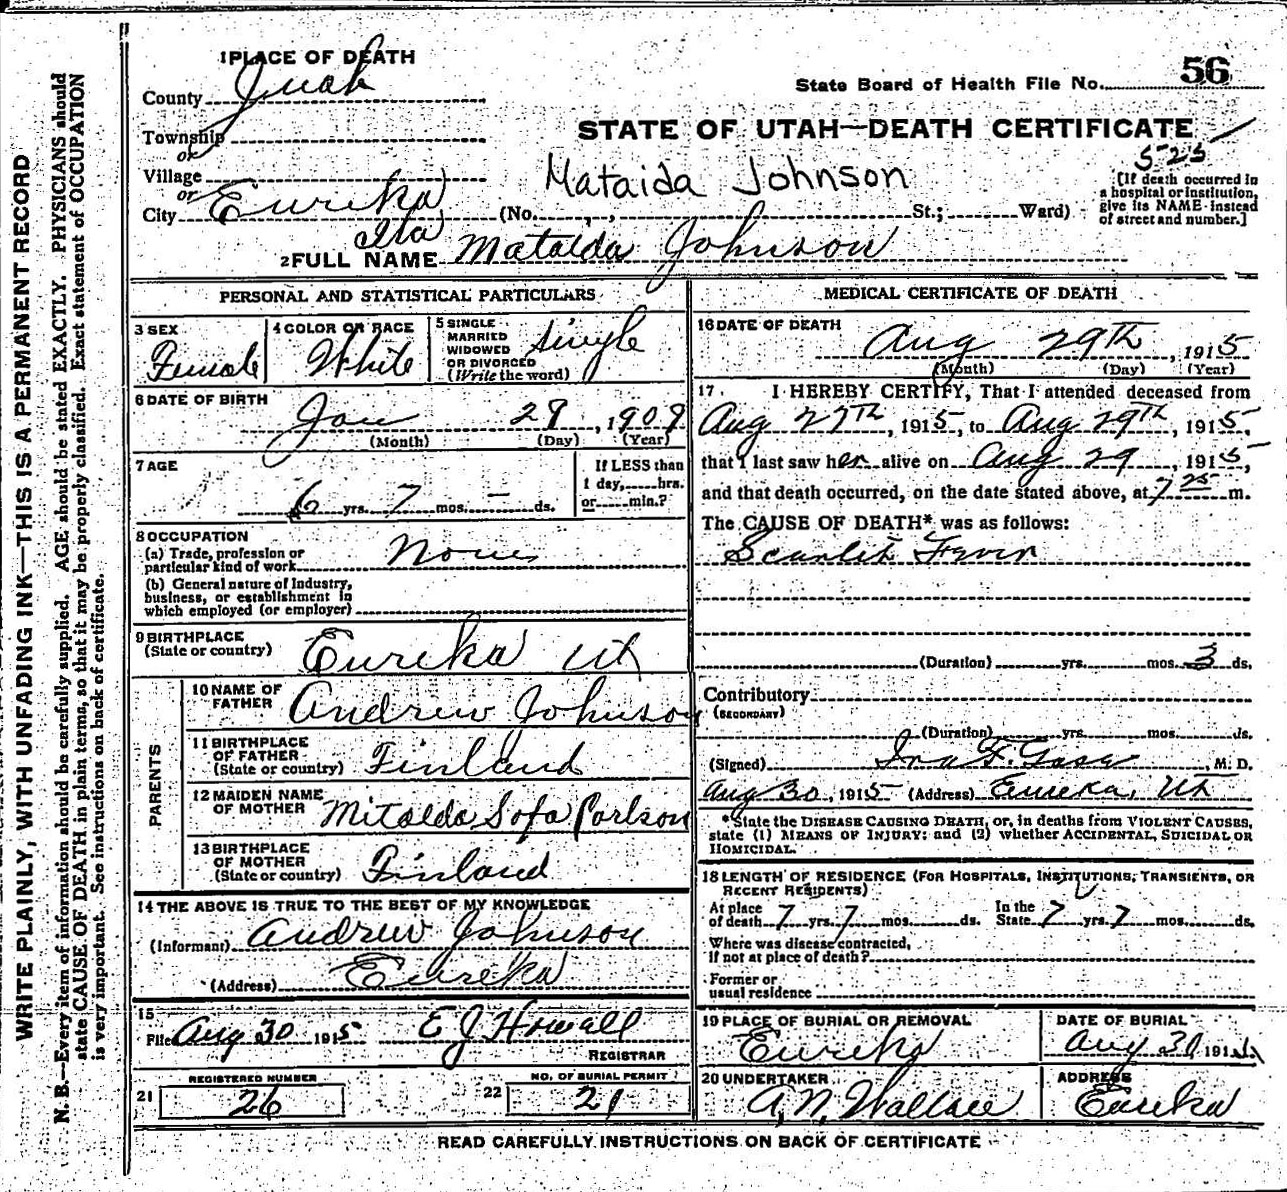 WRITE PLAINLY, WITH UNFADING INK—THIS IS A PERMANENT RECORD
N. B.—Every item of information should be carefully supplied. AGE should be stated EXACTLY. PHYSICIANS should
state CAUSE OF DEATH in plain terms, so that it may be properly classified. Exact statement of OCCUPATION
is very important. See instructions on back of certificate.
1 PLACE OF DEATH
County Juab
State Board of Health File No. 56
Township
or
STATE OF UTAH—DEATH CERTIFICATE
525
Village
or
Mataida Johnson
[If death occurred in
a hospital or institution,
give its NAME instead
of street and number.]
City Eureka (No. , , St.; Ward)
Ida
2 FULL NAME Mataida Johnson
PERSONAL AND STATISTICAL PARTICULARS
3 SEX
Female
4 COLOR OR RACE
White
5 SINGLE
MARRIED
WIDOWED
OR DIVORCED
(Write the word)
Single
6 DATE OF BIRTH
Jan 29, 1909
(Month) (Day) (Year)
7 AGE
6 yrs. 7 mos. – ds.
If LESS than
1 day, hrs.
or min.?
8 OCCUPATION
(a) Trade, profession or
particular kind of work None
(b) General nature of Industry,
business, or establishment in
which employed (or employer)
9 BIRTHPLACE
(State or country) Eureka Ut
PARENTS
10 NAME OF
FATHER Andrew Johnson
11 BIRTHPLACE
OF FATHER
(State or country) Finland
12 MAIDEN NAME
OF MOTHER Mitalda Sofa Carlson
13 BIRTHPLACE
OF MOTHER
(State or country) Finland
14 THE ABOVE IS TRUE TO THE BEST OF MY KNOWLEDGE
(Informant) Andrew Johnson
(Address) Eureka
15
Filed Aug 30 1915 E J Howall
REGISTRAR
21 REGISTERED NUMBER
26
22 NO. OF BURIAL PERMIT
21
MEDICAL CERTIFICATE OF DEATH
16 DATE OF DEATH
Aug 29th, 1915
(Month) (Day) (Year)
17. I HEREBY CERTIFY, That I attended deceased from
Aug 27th, 1915, to Aug 29th, 1915,
that I last saw her alive on Aug 29, 1915,
and that death occurred, on the date stated above, at 7 25 m.
The CAUSE OF DEATH* was as follows:
Scarlet Fever
(Duration) yrs. mos. 3 ds.
Contributory
(SECONDARY)
(Duration) yrs. mos. ds.
(Signed) Ira F. , M. D.
Aug 30, 1915 (Address) Eureka, Ut
*State the DISEASE CAUSING DEATH, or, in deaths from VIOLENT CAUSES,
state (1) MEANS OF INJURY; and (2) whether ACCIDENTAL, SUICIDAL OR
HOMICIDAL.
18 LENGTH OF RESIDENCE (FOR HOSPITALS, INSTITUTIONS, TRANSIENTS, OR
RECENT RESIDENTS)
At place
of death 7 yrs. 7 mos. ds.
In the
State 7 yrs. 7 mos. ds.
Where was disease contracted,
if not at place of death?
Former or
usual residence
19 PLACE OF BURIAL OR REMOVAL
Eureka
DATE OF BURIAL
Aug 30 191
20 UNDERTAKER
A. N. Wallace
ADDRESS
Eureka
READ CAREFULLY INSTRUCTIONS ON BACK OF CERTIFICATE